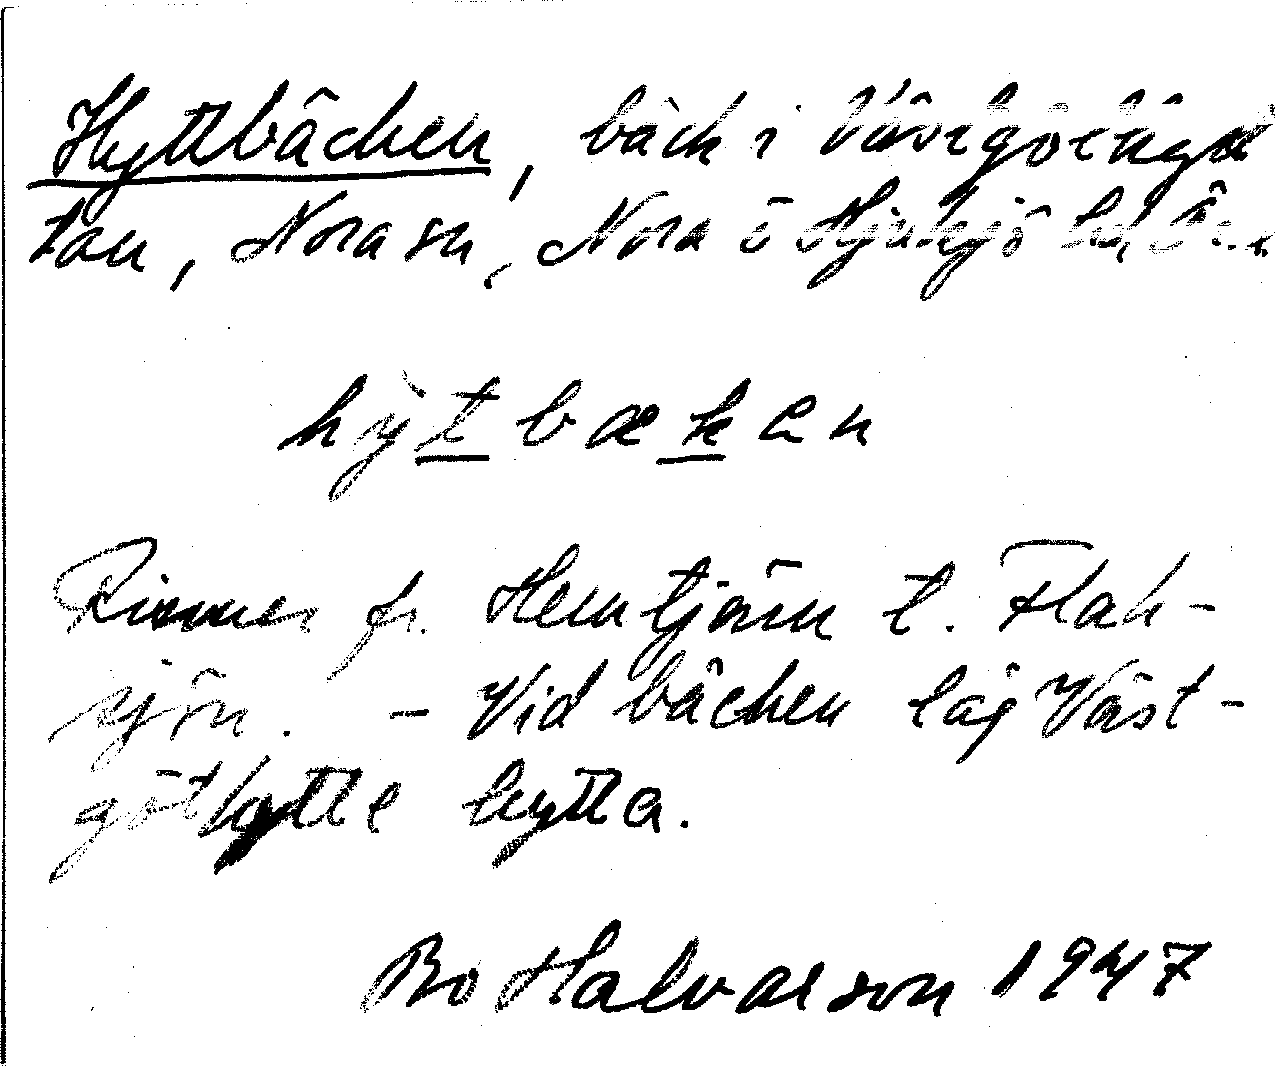 Hyttbäcken, bäck i Västgötehyt
tan, Nora sn, Nora o Hjulsjö
hy̆tbækan
Rinner fr. Hemtjärn t. Flah-
sjön. - Vid bäcken låg Väst-
göthytte hytta.
Bo Halvarson 1947